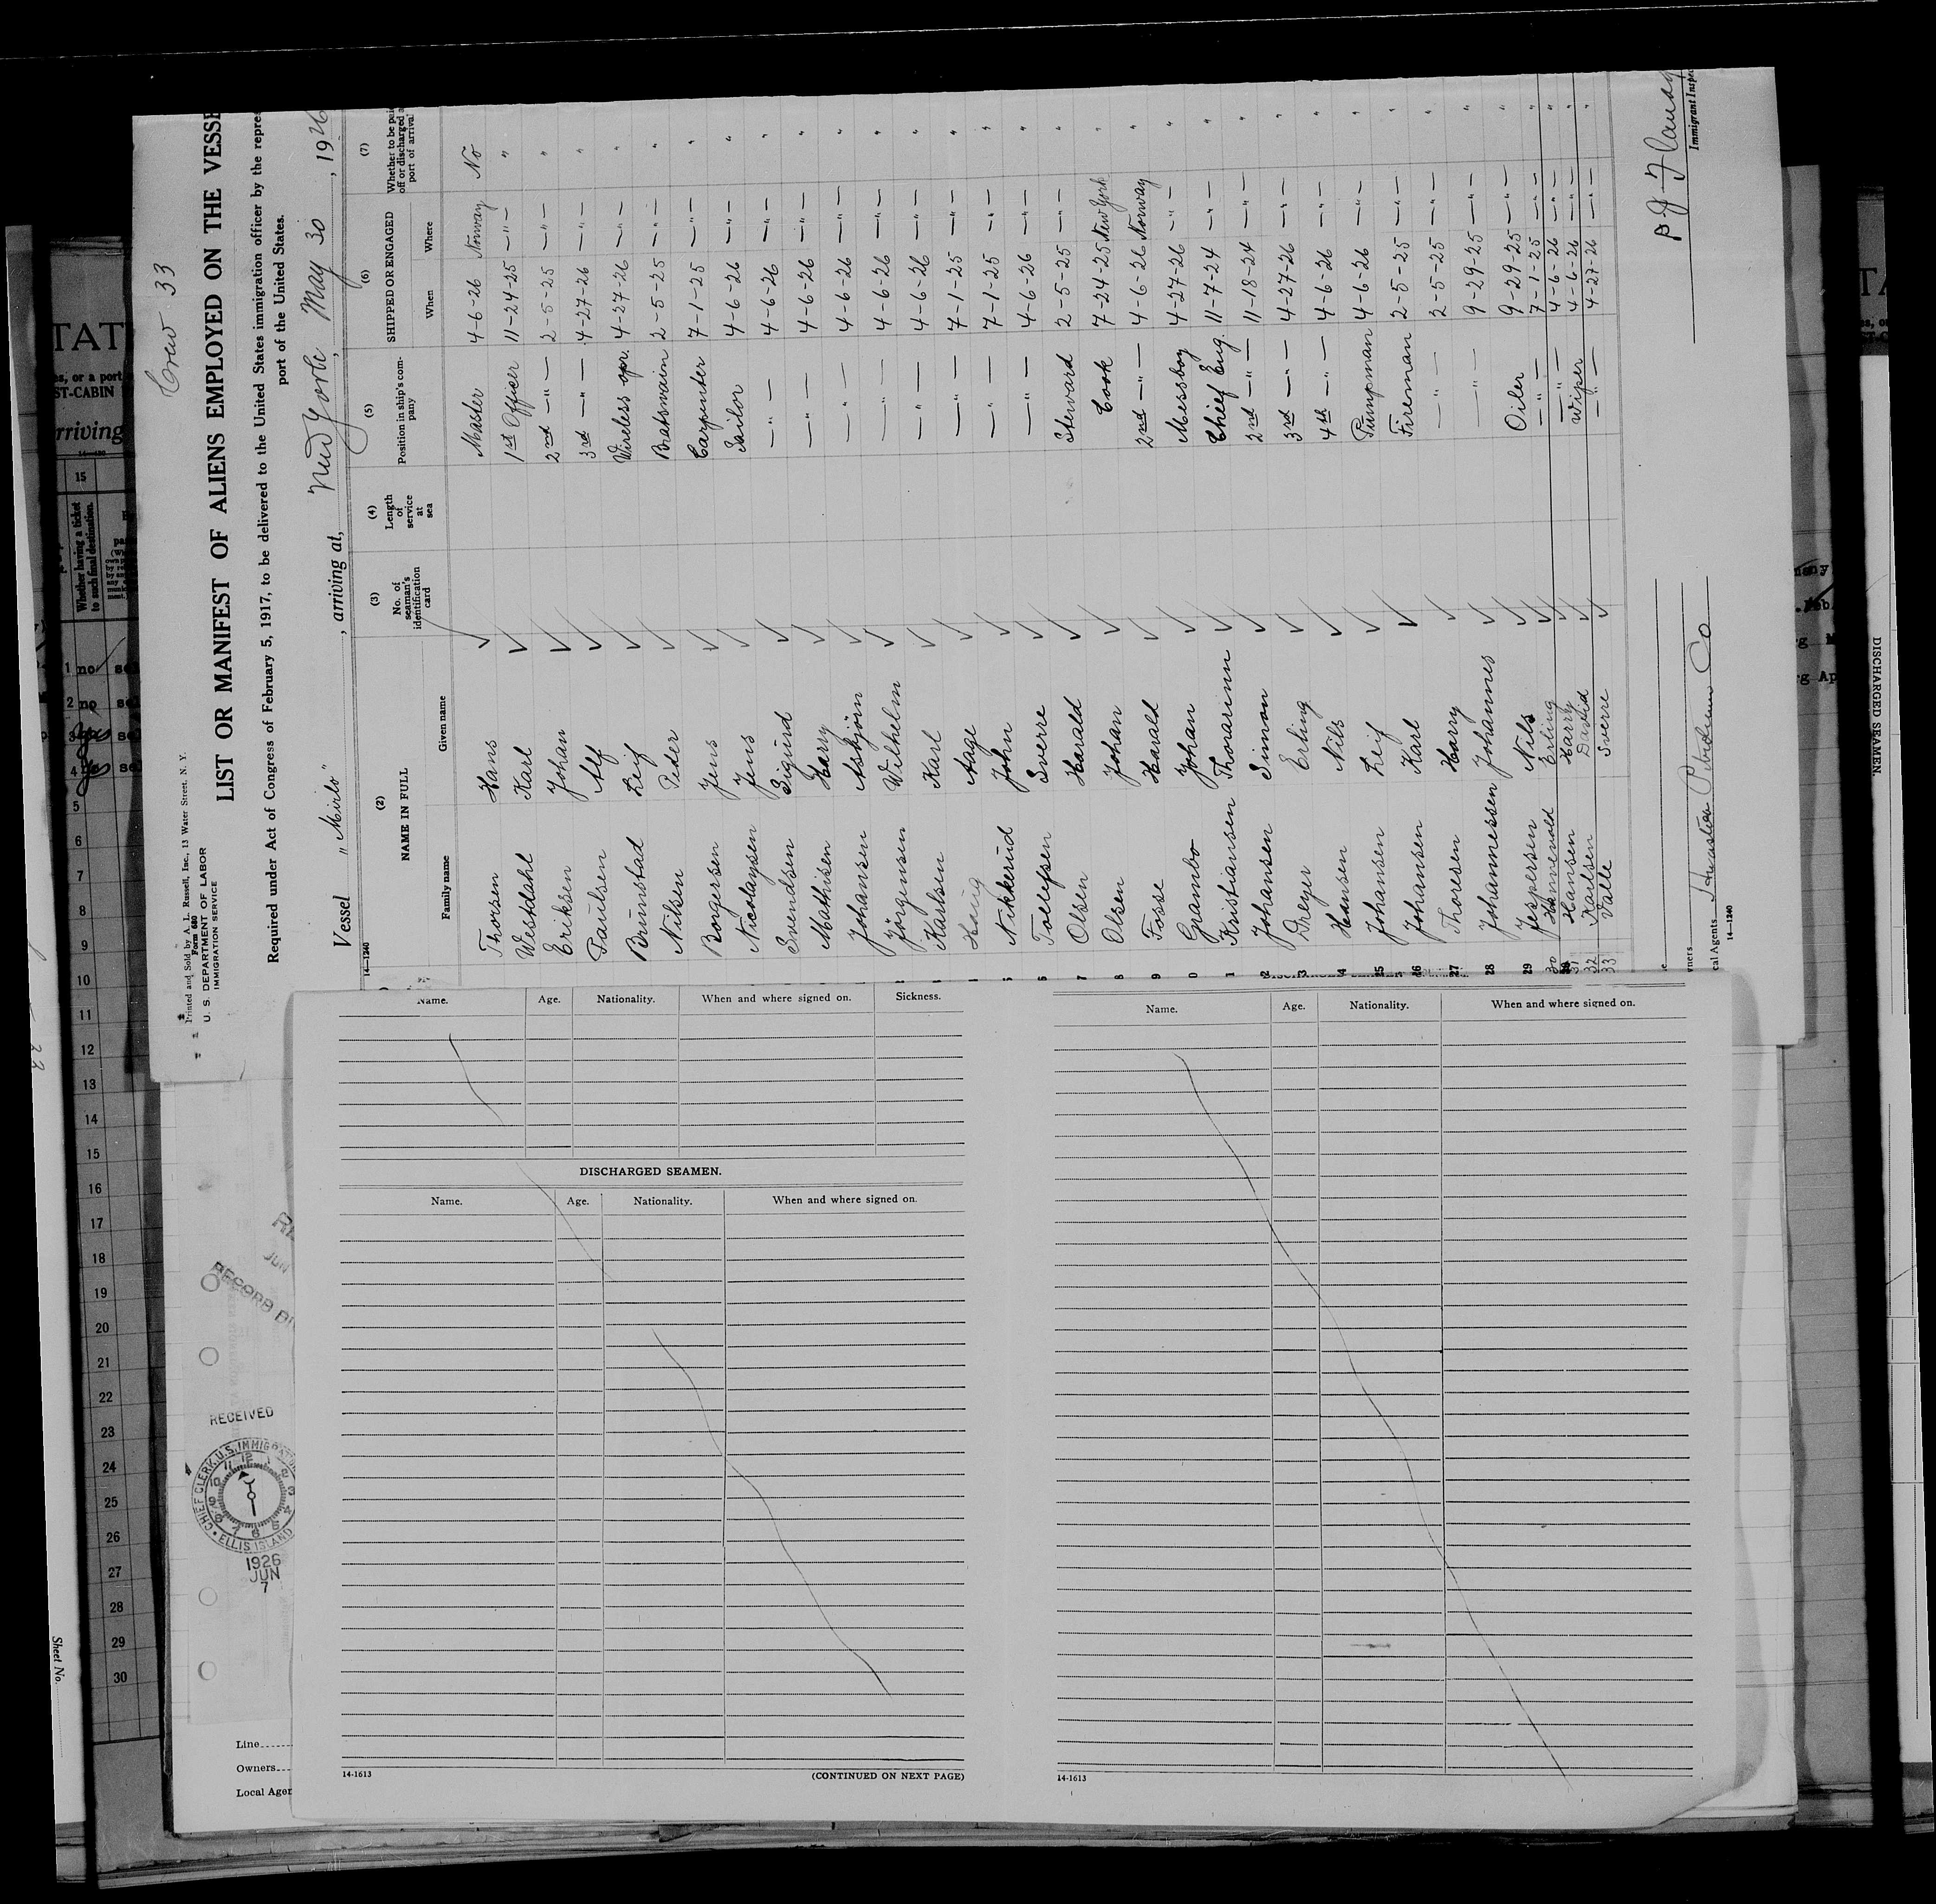 Crew 33
Printed and Sold by A. L. Russell, Inc., 13 Water Street, N. Y.
Form 680
U. S. DEPARTMENT OF LABOR
IMMIGRATION SERVICE
LIST OR MANIFEST OF ALIENS EMPLOYED ON THE VESSE
Required under Act of Congress of February 5, 1917, to be delivered to the United States immigration officer by the repres
port of the United States.
Vessel "Mirlo", arriving at, New York, May 30, 1926
14—1240
(2) (3) (4) (5) (6) (7)
NAME IN FULL No. of seaman's identification card Length of service at sea Position in ship's company SHIPPED OR ENGAGED Whether to be paid off or discharged at port of arrival
Family name Given name When Where
Thorsen Hans Master 4-6-26 Norway No
Westdahl Karl 1st Officer 11-24-25 —"— "
Eriksen Johan 2nd —"— 2-5-25 —"— "
Paulsen Alf 3rd —"— 4-27-26 —"— "
Brunstad Leif Wireless opr. 4-27-26 —"— "
Nilsen Peder Boatswain 2-5-25 —"— "
Bongersen Jens Carpenter 7-1-25 —"— "
Nicolaysen Jens Sailor 4-6-26 —"— "
Svendsen Sigurd —"— 4-6-26 —"— "
Mathisen Harry —"— 4-6-26 —"— "
Johansen Asbjörn —"— 4-6-26 —"— "
Jörgensen Wilhelm —"— 4-6-26 —"— "
Karlsen Karl —"— 4-6-26 —"— "
Haug Aage —"— 7-1-25 —"— "
Nikkerud John —"— 7-1-25 —"— "
Tollefsen Sverre —"— 4-6-26 —"— "
Olsen Harald Steward 2-5-25 —"— "
Olsen Johan Cook 7-24-25 New York "
Fosse Harald 2nd —"— 4-6-26 Norway "
Grambo Johan Messboy 4-27-26 —"— "
Kristiansen Thorarinn Chief Eng. 11-7-24 —"— "
Johansen Simon 2nd —"— 11-18-24 —"— "
Dreyer Erling 3rd —"— 4-27-26 —"— "
Hansen Nils 4th —"— 4-6-26 —"— "
25 Johansen Leif Pumpman 4-6-26 —"— "
26 Johansen Karl Fireman 2-5-25 —"— "
27 Thoresen Harry —"— 2-5-25 —"— "
28 Johannessen Johannes —"— 9-29-25 —"— "
29 Jespersen Nils Oiler 9-29-25 —"— "
30 Hannevold Erling —"— 7-1-25 —"— "
31 Hansen Harry —"— 4-6-26 —"— "
32 Karlsen David Wiper 4-6-26 —"— "
33 Valle Sverre —"— 4-27-26 —"— "
Immigrant Inspec
wners
cal Agents
Co
14—1240
Name. Age. Nationality. When and where signed on. Sickness.
DISCHARGED SEAMEN.
Name. Age. Nationality. When and where signed on.
14-1613
(CONTINUED ON NEXT PAGE)
Name. Age. Nationality. When and where signed on.
14-1613
TAT
es, or a port
ST-CABIN
rriving
14—430
15
Whether having a ticket to such final destination.
1 no
2 no
3
4
5
6
7
8
9
10
11
12
13
14
15
16
17
18
19
20
21
22
23
24
25
26
27
28
29
30
RECORD DI
RECEIVED
CHIEF CLERK, U.S. IMMIGRAT
ELLIS ISLAND
1926
JUN
7
Line
Owners
Local Agen
Sheet No.
DISCHARGED SEAMEN.